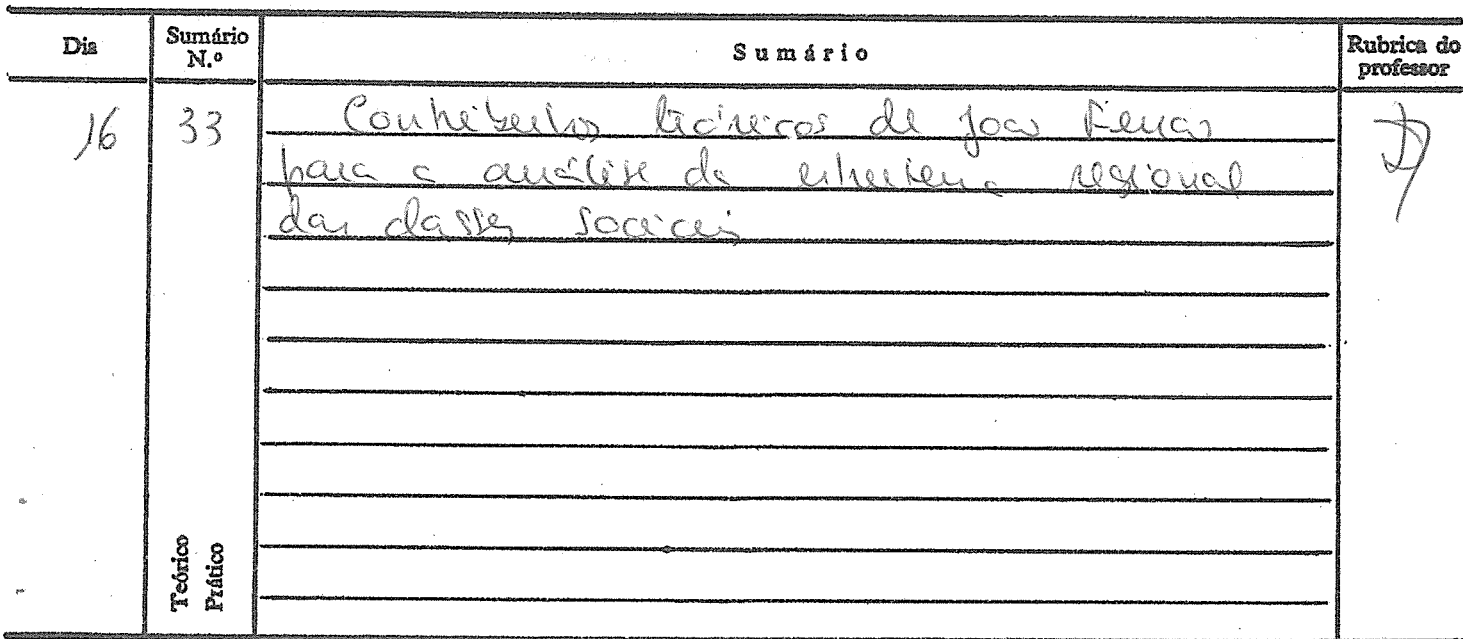 Dia
Sumário N.º
Sumário
Rubrica do professor
16
33
Contributos teóricos de João Ferrão
para a análise da estrutura regional
das classes sociais
Teórico
Prático